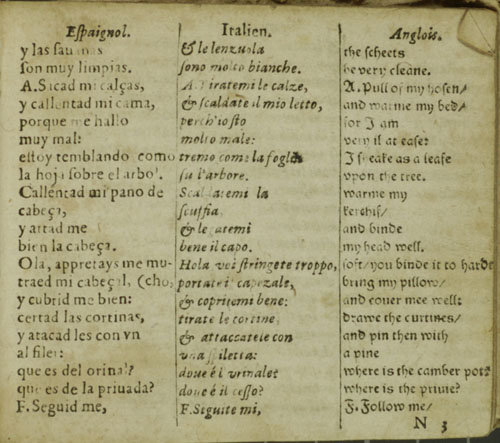 Eſpaignol.
y las ſauanas
ſon muy limpias.
A. Sacad mi calças,
y callentad mi cama,
porque me hallo
muy mal:
eſtoy temblando como
la hoja ſobre el arbol.
Callentad mi pano de
cabeça,
y attad me
bien la cabeça.
Ola, appretays me mu-
traed mi cabeçal, (cho,
y cubrid me bien:
certad las cortinas,
y atacad les con vn
alfiler:
que es del orinal?
que es de la priuada?
F. Seguid me,
Italien.
& le lenzuola
ſono molto bianche.
A. Tiratemi le calze,
& ſcaldate il mio letto,
perch'io ſto
molto male:
tremo come la foglia
ſu l'arbore.
Scaldatemi la
ſcuffia,
& legatemi
bene il capo.
Hola voi ſtringete troppo,
portate il capezale,
& copritemi bene:
tirate le cortine,
& attaccatele con
vna ſpiletta:
doue é l vrinale?
doue é il ceſſo?
F. Seguite mi,
Anglois.
the ſcheets
be very cleane.
A. Pull of my hoſen/
and warme my bed/
for I am
very il at eaſe:
I ſhake as a leafe
vpon the tree.
warme my
kerchif/
and binde
my head well.
ſoft/ you binde it to hard:
bring my pillow/
and couer mee well:
drawe the curtines/
and pin then with
a pine
where is the camber pot?
where is the priuie?
F. Follow me/
N 3